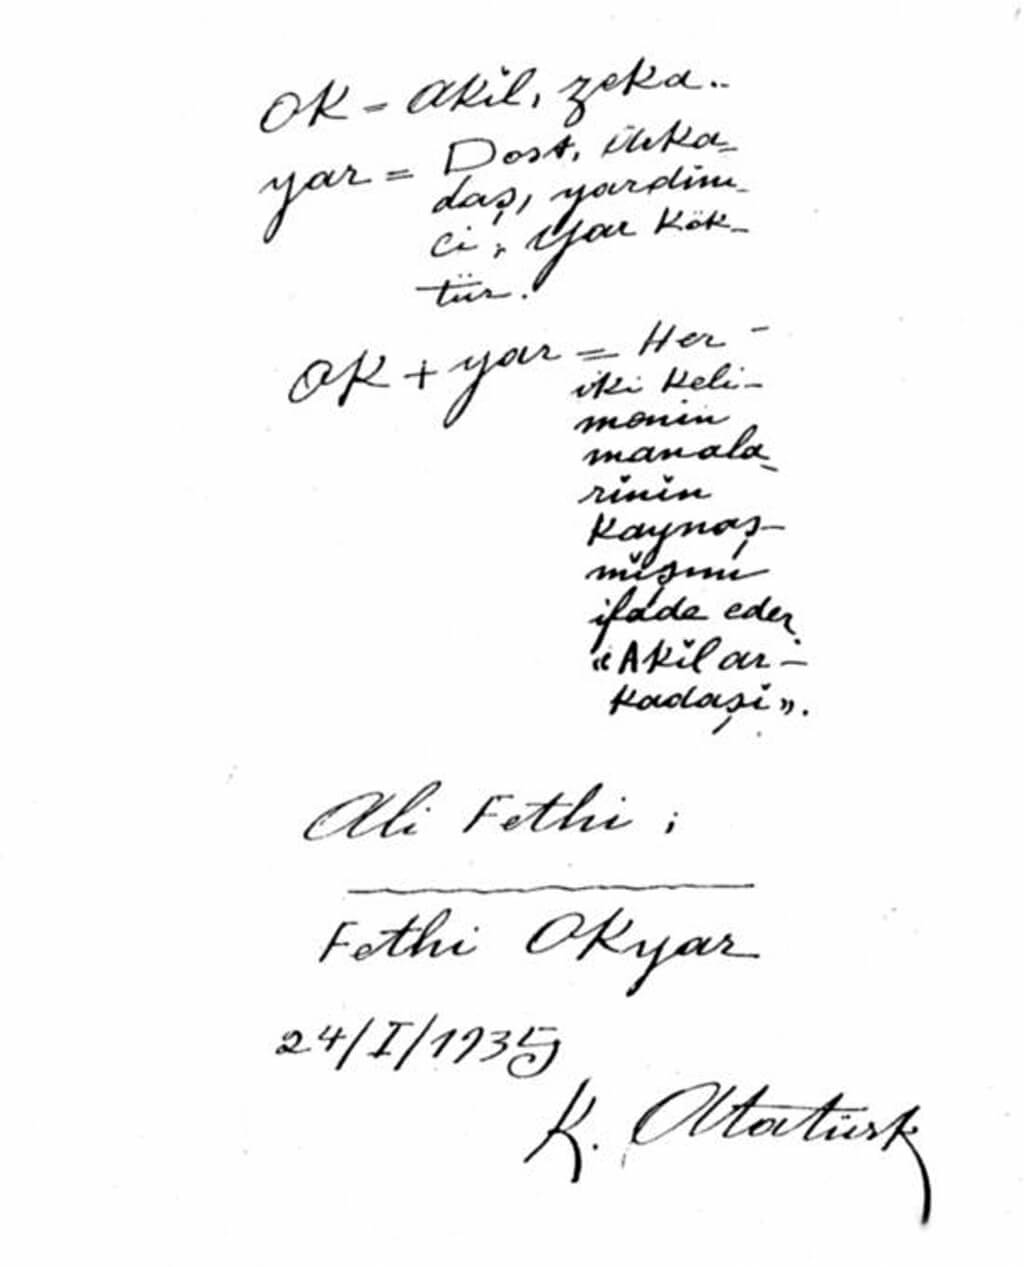 OK = Akĭl, zeka..
yar = Dost, ülkü-
daş, yardĭm-
cĭ; Yar kök-
tür.
OK + yar = Her -
iki keli-
menin
manala-
rĭnĭn
kaynaş-
mĭşĭnĭ
ifade eder
"Akĭl ar-
kadaşĭ".
Ali Fethi ;
Fethi Okyar
24/I/1935
K. Atatürk